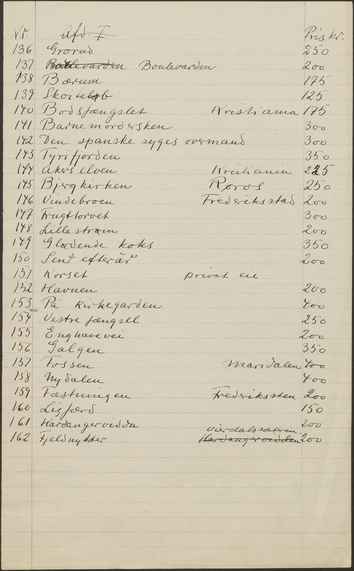 Nr afd I Pris kr.
136 Grorud 250
137 Boulevarden Boulevarden 200
138 Bærum 175
139 Skoieløb 125
140 Bodsfængslet Kristiania 175
141 Barnemordersken 300
142 Den spanske syges overmand 300
143 Tyrifjorden 350
144 Akerselven Kristiania 225
145 Bjergkirken Røros 250
146 Vindebroen Fredrikstad 200
147 Frugttorvet 300
148 Lillestrøm 200
149 Glødende koks 350
150 Sent efterår 200
151 Korset privat eie
152 Havnen 200
153 På kirkegården 400
154 Vestre fængsel 250
155 Enghaveven 200
156 Galgen 350
157 Fossen Maridalen 400
158 Nydalen 400
159 Fæstningen Fredriksten 200
160 Ligfærd 150
161 Hardangervidda 200
162 Fjeldhytter Hardangervidden 200